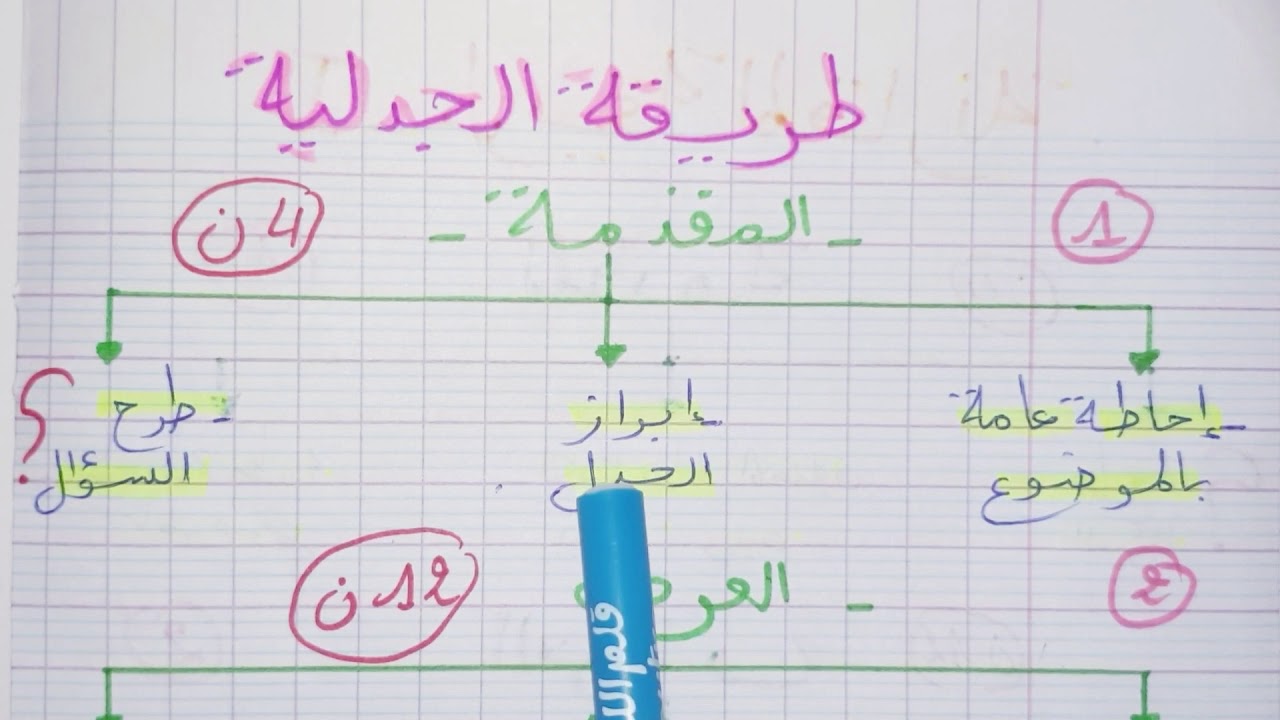 طريقة الجدلية
1 - المقدمة - 4 ن
- إحاطة عامة
بالموضوع
- إبراز
الجدل
- طرح
السؤال ؟
2 - العرض 12 ن
قلم